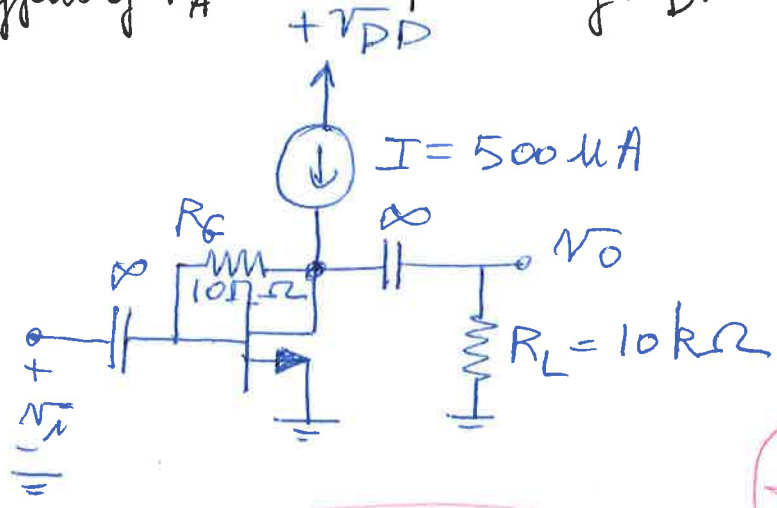 +VDD
I = 500 µA
RG
∞
vo
∞
RL = 10 kΩ
+
vi
-